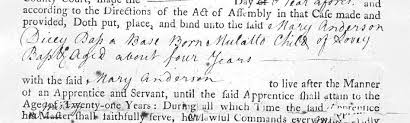 Year afores
according to the Directions of the Act of Assembly in that Case made and
provided, Doth put, place, and bind unto the said Mary Anderson
Dicey Bap a Base Born Mulatto Child of Dovey
Bap Aged about four Years
with the said Mary Anderson to live after the Manner
of an Apprentice and Servant, until the said Apprentice shall attain to the
Age of Twenty-one Years: During all which Time the said
Master shall faithfully serve, lawful Commands every